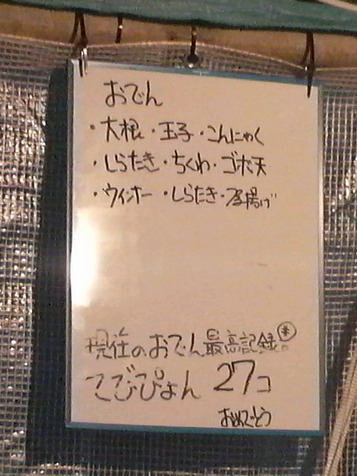 おでん
・大根・玉子・こんにゃく
・しらたき・ちくわ・ゴボ天
・ウィンナー・しらたき・厚揚げ
現在のおでん最高記録
こごぴょん 27コ
おめでとう